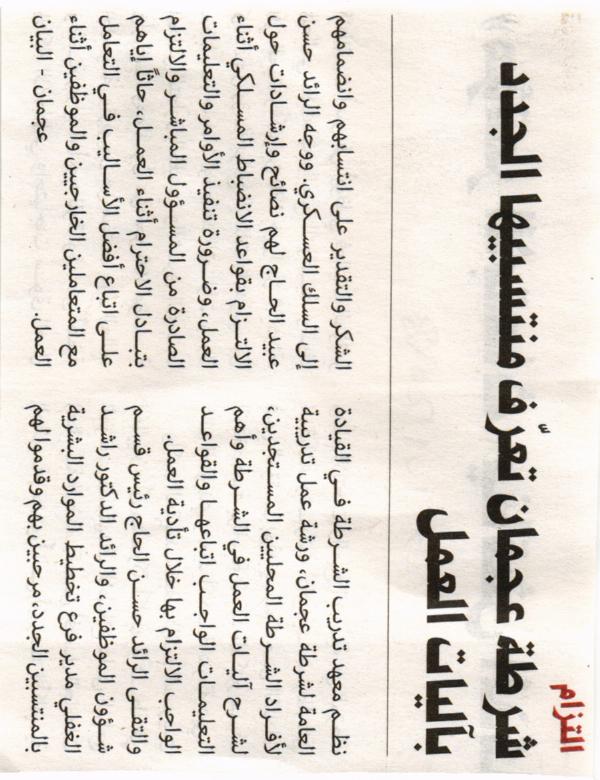 التزام
شرطة عجمان تعرّف منتسبيها الجدد
بآليات العمل
نظم معهد تدريب الشرطة في القيادة
العامة لشرطة عجمان، ورشة عمل تدريبية
لأفراد الشرطة المحليين المستجدين،
لشرح آليات العمل في الشرطة وأهم
التعليمات الواجب اتباعها والقواعد
الواجب الالتزام بها خلال تأدية العمل.
والتقى الرائد حسن الحاج رئيس قسم
شؤون الموظفين، والرائد الدكتور راشد
الغفلي مدير فرع تخطيط الموارد البشرية
بالمنتسبين الجدد، مرحبين بهم وقدموا لهم
الشكر والتقدير على انتسابهم وانضمامهم
إلى السلك العسكري. ووجه الرائد حسن
عبيد الحاج لهم نصائح وإرشادات حول
الالتزام بقواعد الانضباط المسلكي أثناء
العمل، وضرورة تنفيذ الأوامر والتعليمات
الصادرة من المسؤول المباشر والالتزام
بتبادل الاحترام أثناء العمل، حاثاً إياهم
على اتباع أفضل الأساليب في التعامل
مع المتعاملين الخارجيين والموظفين أثناء
العمل. عجمان - البيان